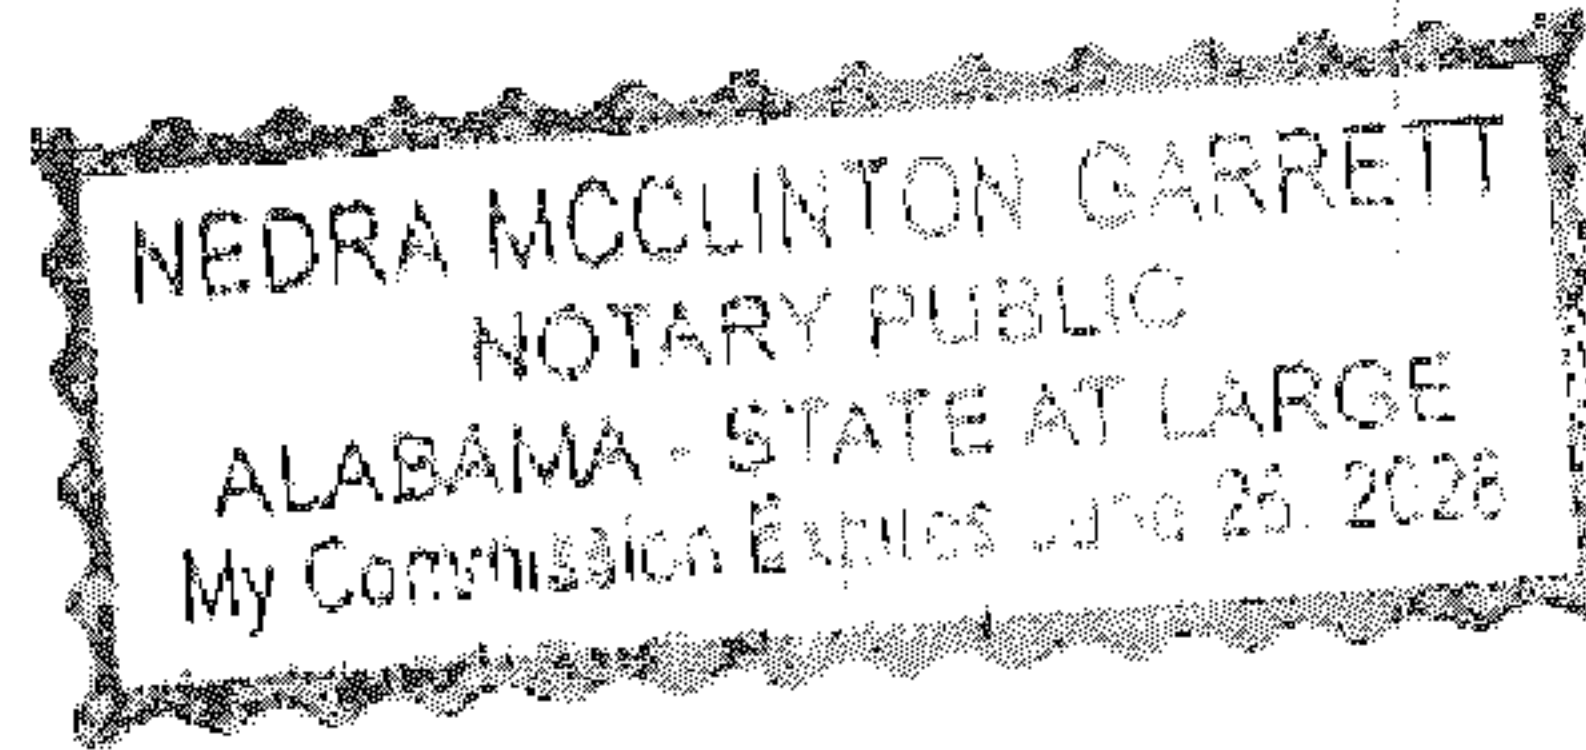 NEDRA MCCLINTON GARRETT
NOTARY PUBLIC
ALABAMA - STATE AT LARGE
My Commission Expires June 2028